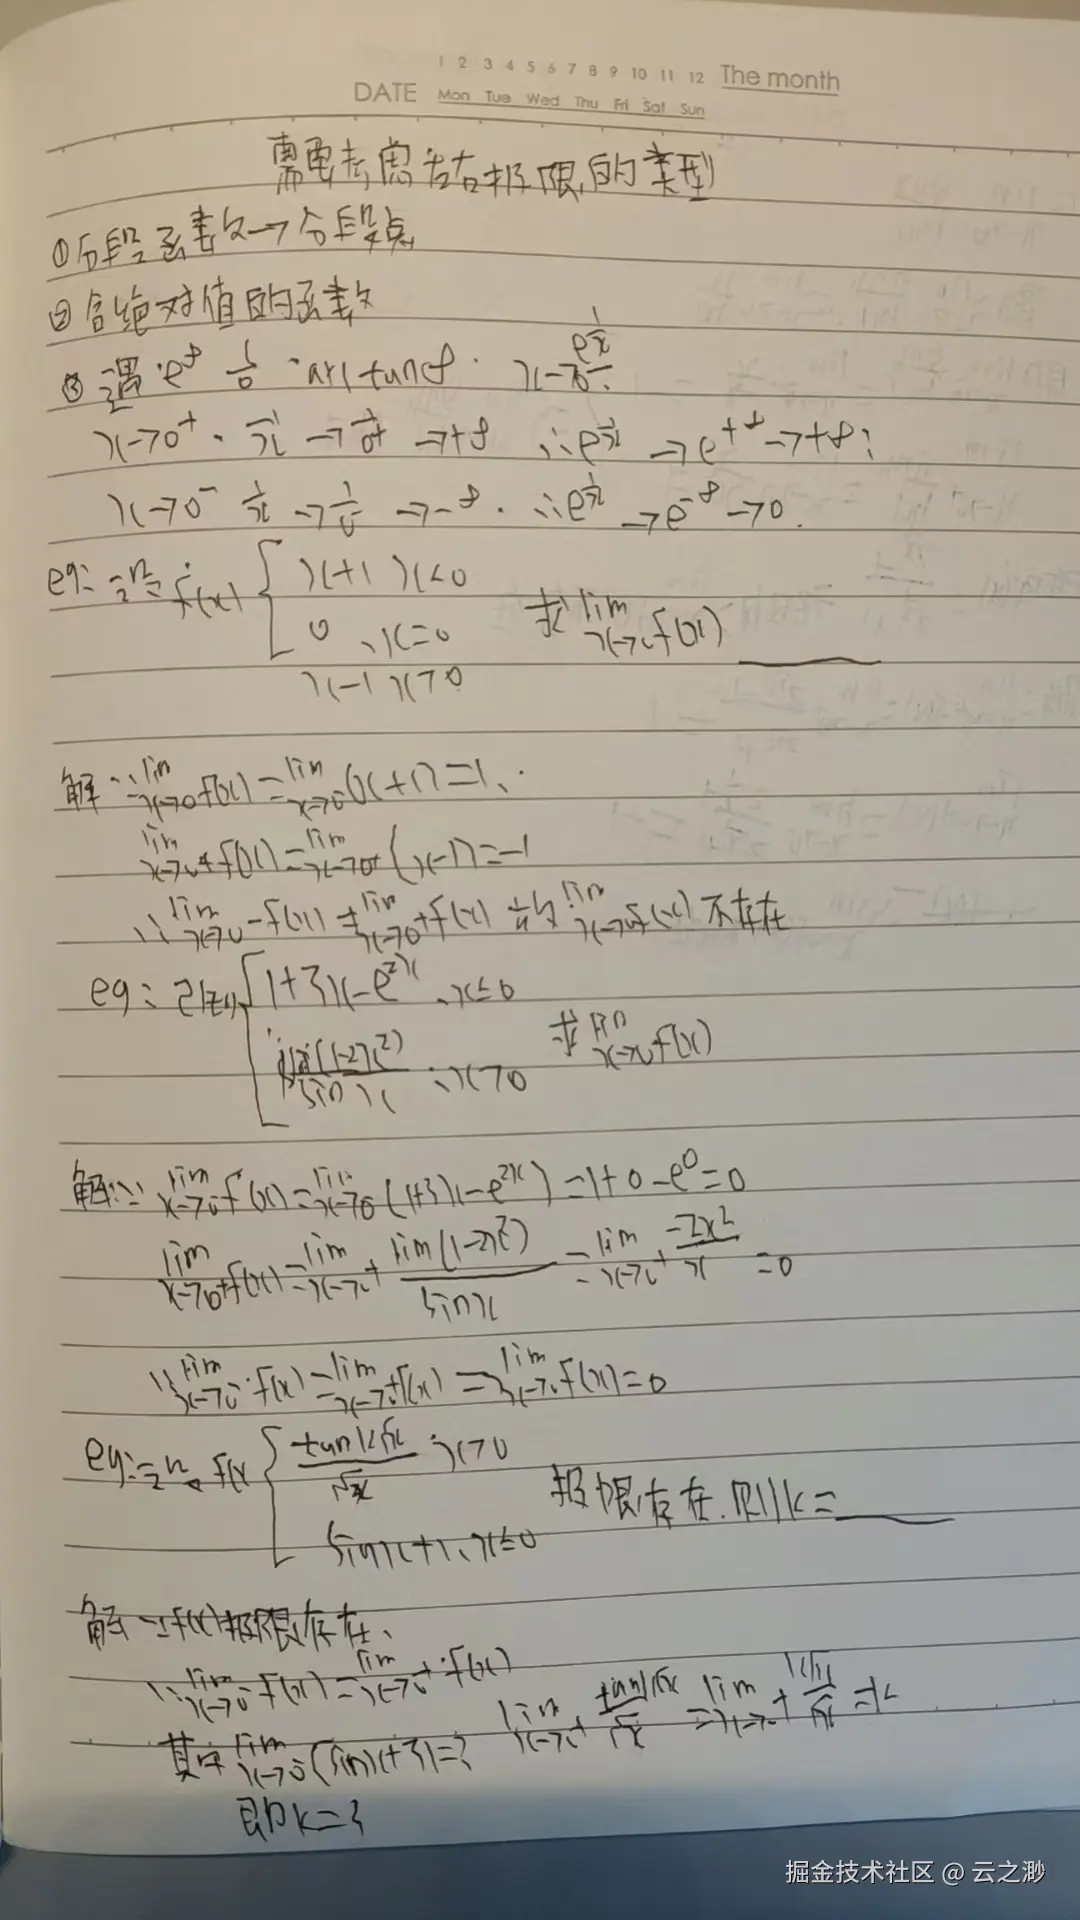 1 2 3 4 5 6 7 8 9 10 11 12 The month
DATE Mon Tue Wed Thu Fri Sat Sun
需要考虑左右极限的类型
①分段函数→分段点
②含绝对值的函数
③遇 e^∞ 1/0 arctan∞ x→0 e^(1/x)
x→0⁺ 1/x →1/0⁺ →+∞ ∴e^(1/x) →e^(+∞)→+∞;
x→0⁻ 1/x →1/0 →-∞ ∴e^(1/x) →e^(-∞)→0.
eg: 设 f(x) { x+1 x<0
0, x=0 求lim x→0 f(x)
x-1 x>0
解: ∵lim x→0 f(x)=lim x→0⁻(x+1)=1,
lim x→0⁺ f(x)=lim x→0⁺ (x-1)=-1
∵lim x→0⁻ f(x)≠lim x→0⁺ f(x) 故lim x→0 f(x) 不存在
eg: { 1+3x-e^(2x), x≤0
(1-2x²)/sin x, x>0 求lim x→0 f(x)
解: ∵lim x→0⁻ f(x)=lim x→0⁻ (1+3x-e^(2x))=1+0-e⁰=0
lim x→0⁺ f(x)=lim x→0⁺ lim(1-2x²)/sinx =lim x→0⁺ -2x²/x =0
∵lim x→0⁻ f(x)=lim x→0⁺ f(x)=lim x→0 f(x)=0
eg: 设 f(x { tank√x/√x, x>0
极限存在,则k=
sinx+1, x≤0
解 ∵f(x)极限存在,
∵lim x→0⁻ f(x)=lim x→0⁺ f(x)
其中lim x→0⁻(sinx+3)=3 lim x→0⁺ tank√x/√x =lim x→0⁺ k√x/√x =k
即k=3
掘金技术社区 @ 云之渺